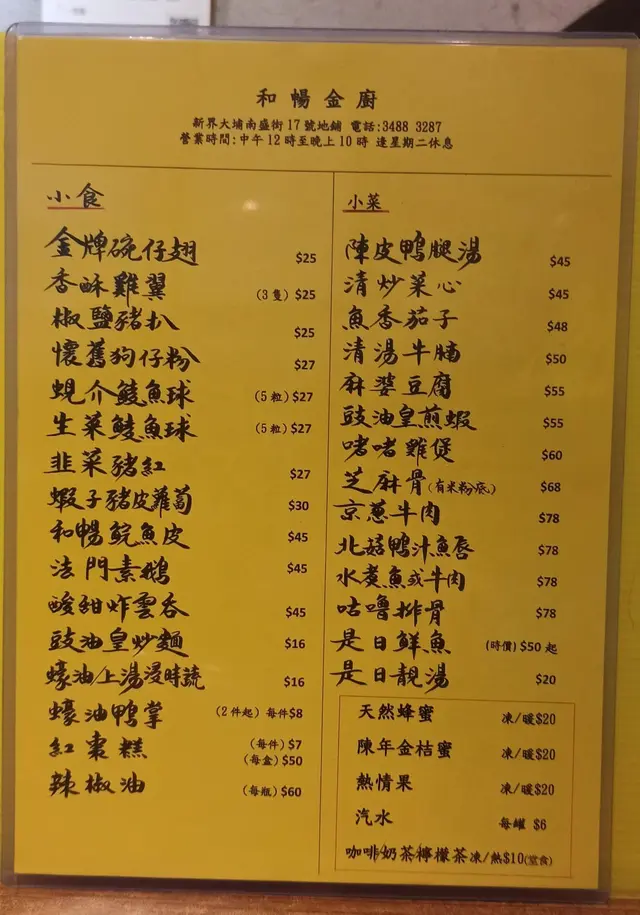 和暢金廚
新界大埔南盛街17號地鋪 電話:3488 3287
營業時間:中午12時至晚上10時 逢星期二休息
小食
金牌碗仔翅 $25
香酥雞翼 (3隻) $25
椒鹽豬扒 $25
懷舊狗仔粉 $27
蜆介鯪魚球 (5粒) $27
生菜鯪魚球 (5粒) $27
韭菜豬紅 $27
蝦子豬皮蘿蔔 $30
和暢鯇魚皮 $45
法門素鵝 $45
酸甜炸雲吞 $45
豉油皇炒麵 $16
蠔油/上湯浸時蔬 $16
蠔油鴨掌 (2件起) 每件$8
紅棗糕 (每件) $7
(每盒) $50
辣椒油 (每瓶) $60
小菜
陳皮鴨腿湯 $45
清炒菜心 $45
魚香茄子 $48
清湯牛腩 $50
麻婆豆腐 $55
豉油皇煎蝦 $55
啫啫雞煲 $60
芝麻骨(有米粉底) $68
京蔥牛肉 $78
北菇鴨汁魚唇 $78
水煮魚或牛肉 $78
咕嚕排骨 $78
是日鮮魚 (時價) $50 起
是日靚湯 $20
天然蜂蜜 凍/暖$20
陳年金桔蜜 凍/暖$20
熱情果 凍/暖$20
汽水 每罐 $6
咖啡/奶茶/檸檬茶 凍/熱$10(堂食)